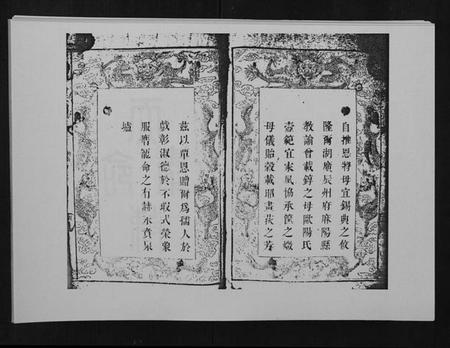 自推恩將母宜錫典之攸
隆爾湖廣辰州府麻陽縣
教諭曾載錞之母歐陽氏
壼範宜末夙協承筐之媺
母儀貽穀載耶畫荻之芳
茲以覃恩贈爾為孺人於
戲彰淑德於不瑕式榮象
服膺寵命之有赫永賁泉
壚